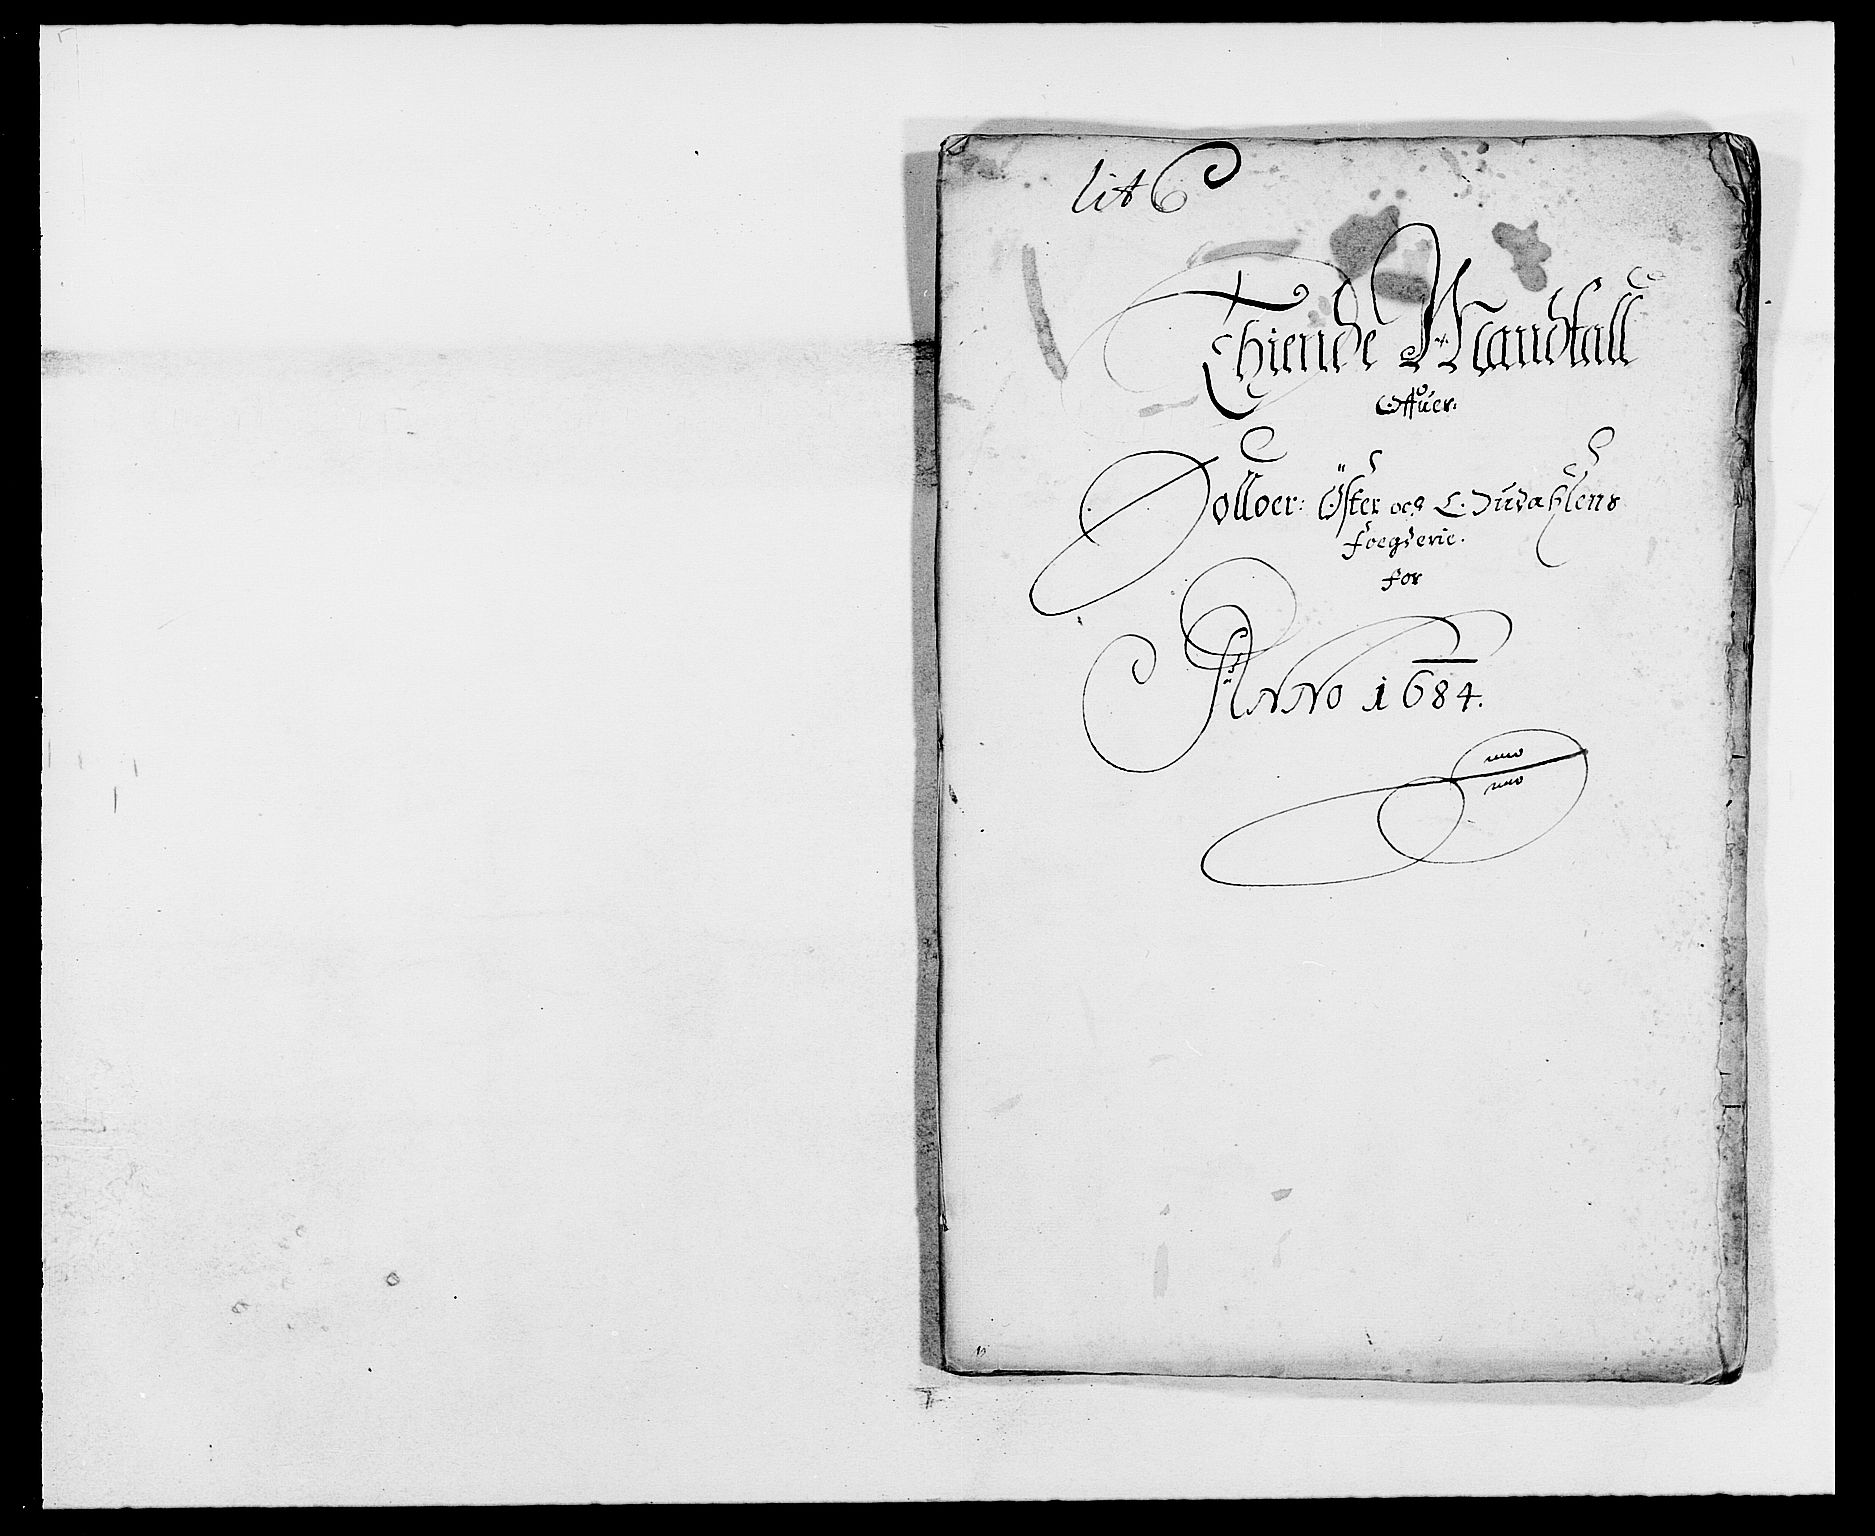 lit C
Thiende Mandtall
Offuer.
Solloer: Öster och Ø. Dudahlens
foegderie.
for
ANNO 1684.